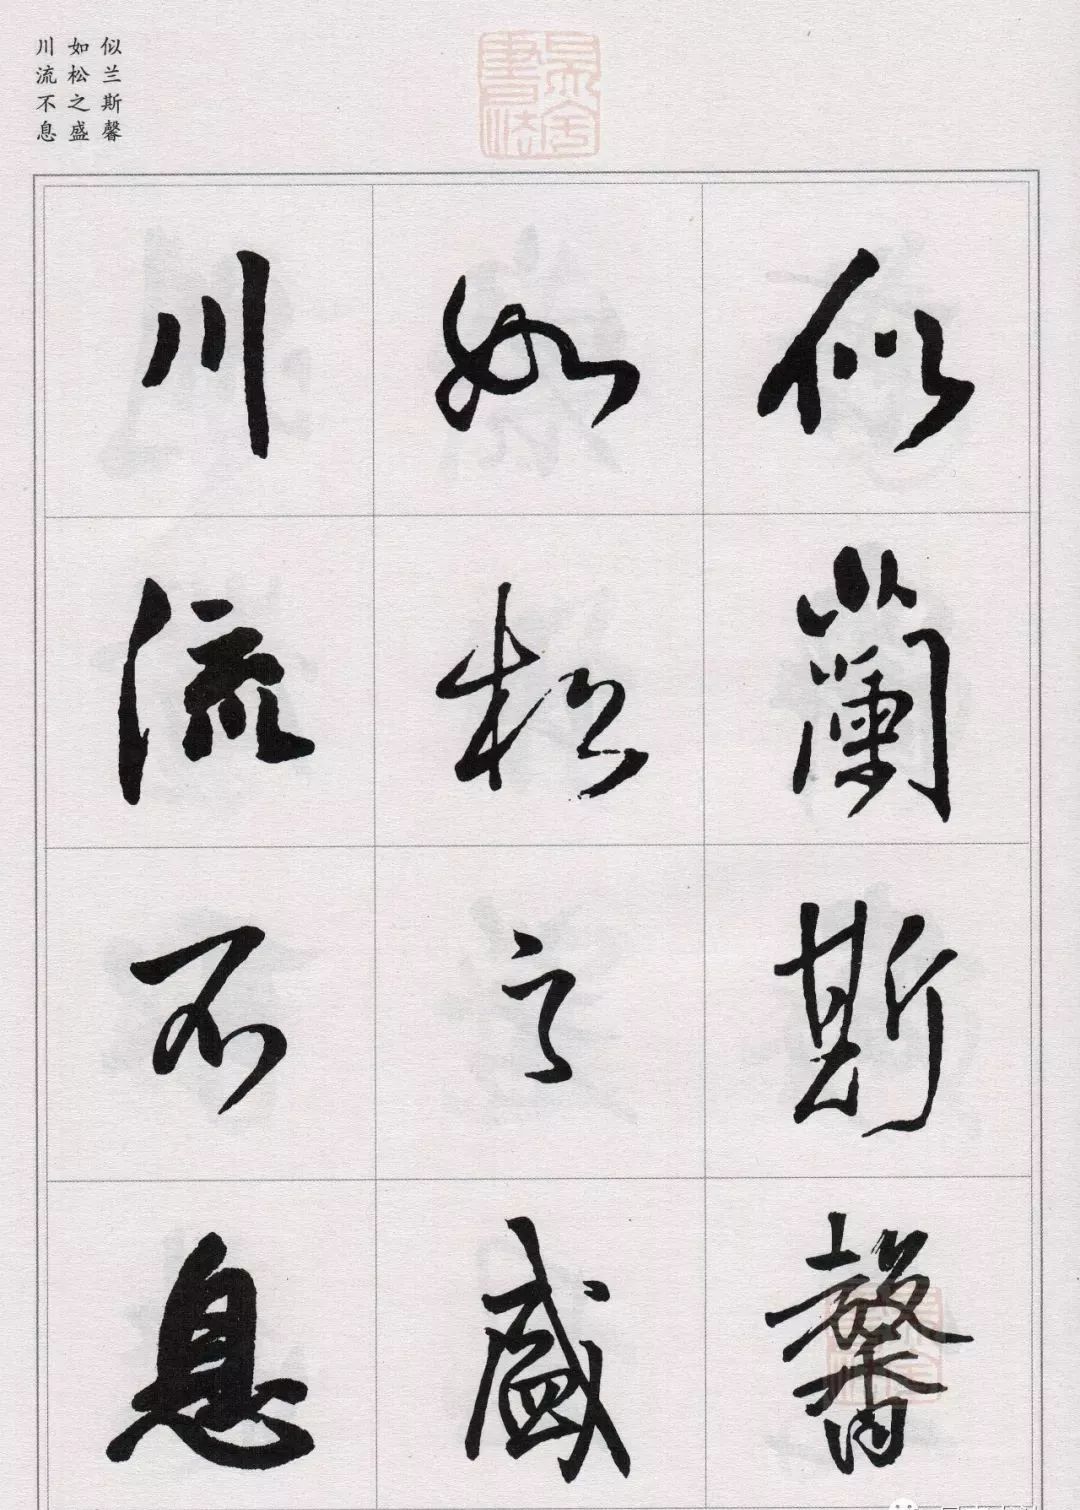 似兰斯馨
如松之盛
川流不息
似蘭斯馨
如松之盛
川流不息